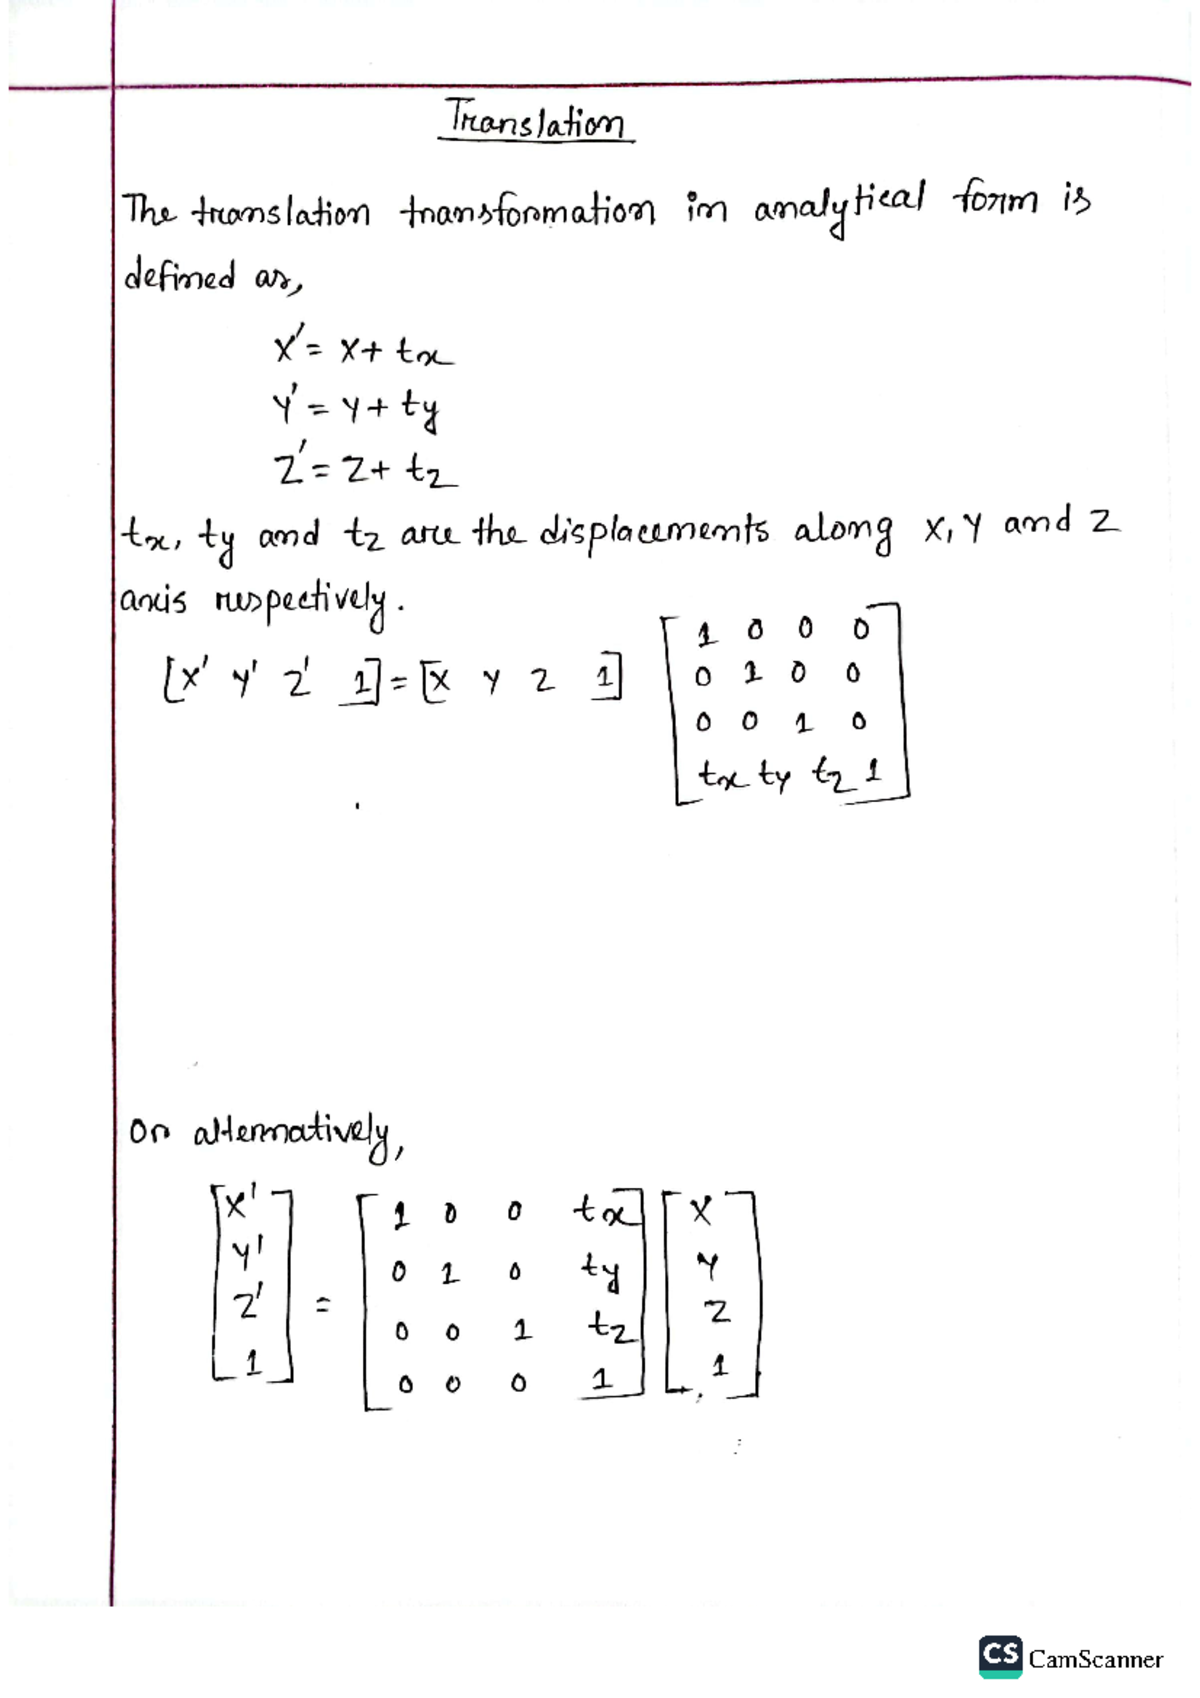 Translation
The translation transformation in analytical form is
defined as,
X' = X + tx
Y' = Y + ty
Z' = Z + tz
tx, ty and tz are the displacements along X, Y and Z
axis respectively.
[X' Y' Z' 1] = [X Y Z 1] [1 0 0 0
0 1 0 0
0 0 1 0
tx ty tz 1]
Or alternatively,
[X'
Y'
Z'
1] = [1 0 0 tx
0 1 0 ty
0 0 1 tz
0 0 0 1] [X
Y
Z
1]
CS CamScanner